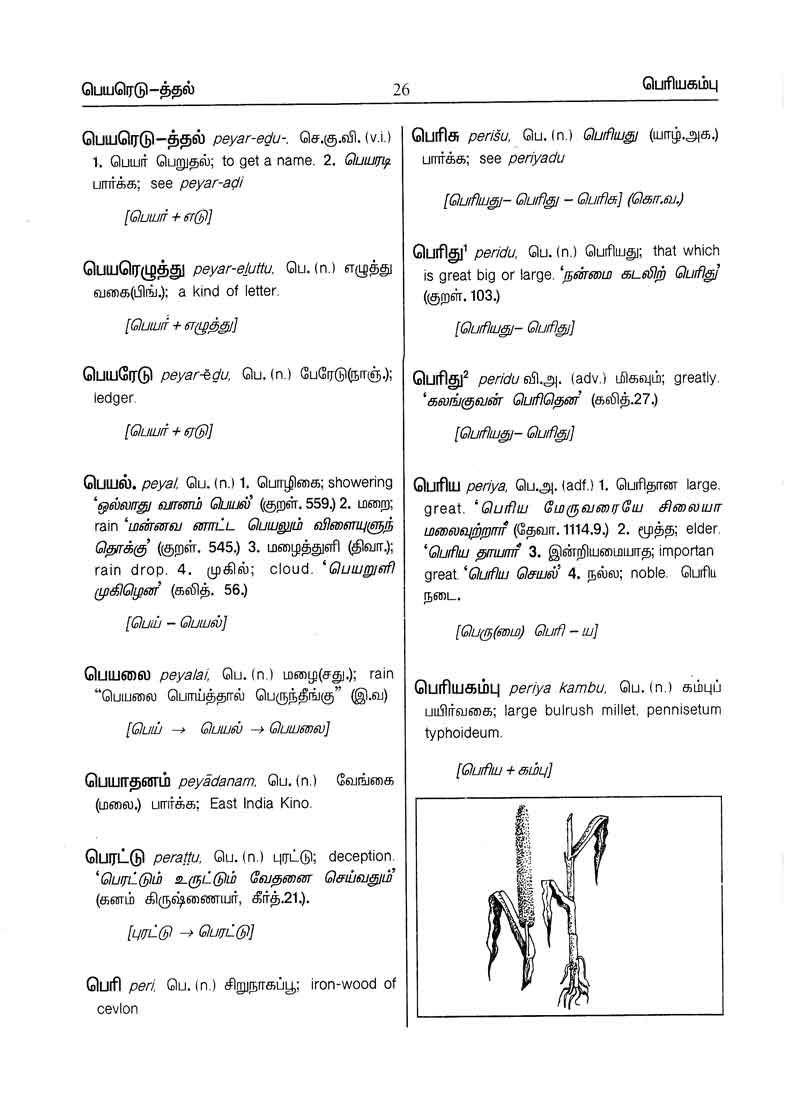 பெயரெடு–த்தல்
26
பெரியகம்பு
பெயரெடு–த்தல் peyar-eḍu-, செ.கு.வி. (v.i.)
1. பெயர் பெறுதல்; to get a name. 2. பெயரடி
பார்க்க; see peyar-aḍi
[பெயர் + எடு]
பெயரெழுத்து peyar-eḻuttu, பெ. (n.) எழுத்து
வகை(பிங்.); a kind of letter.
[பெயர் + எழுத்து]
பெயரேடு peyar-ēḍu, பெ. (n.) பேரேடு(நாஞ்.);
ledger.
[பெயர் + ஏடு]
பெயல். peyal, பெ. (n.) 1. பொழிகை; showering
‘ஒல்லாது வானம் பெயல்’ (குறள். 559.) 2. மறை;
rain ‘மன்னவ னாட்ட பெயலும் விளையுளுந்
தொக்கு’ (குறள். 545.) 3. மழைத்துளி (திவா.);
rain drop. 4. முகில்; cloud. ‘பெயறுளி
முகிழென’ (கலித். 56.)
[பெய் – பெயல்]
பெயலை peyalai, பெ. (n.) மழை(சது.); rain
“பெயலை பொய்த்தால் பெருந்தீங்கு” (இ.வ)
[பெய் → பெயல் → பெயலை]
பெயாதனம் peyādanam, பெ. (n.) வேங்கை
(மலை.) பார்க்க; East India Kino.
பெரட்டு peraṭṭu, பெ. (n.) புரட்டு; deception.
‘பெரட்டும் உருட்டும் வேதனை செய்வதும்’
(கனம் கிருஷ்ணையர், கீர்த்.21,).
[புரட்டு → பெரட்டு]
பெரி peri, பெ. (n.) சிறுநாகப்பூ; iron-wood of
cevlon
பெரிசு perišu, பெ. (n.) பெரியது (யாழ்.அக.)
பார்க்க; see periyadu
[பெரியது– பெரிது – பெரிசு] (கொ.வ.)
பெரிது¹ peridu, பெ. (n.) பெரியது; that which
is great big or large. ‘நன்மை கடலிற் பெரிது’
(குறள். 103.)
[பெரியது– பெரிது]
பெரிது² peridu வி.அ. (adv.) மிகவும்; greatly.
‘கலங்குவன் பெரிதென’ (கலித்.27.)
[பெரியது– பெரிது]
பெரிய periya, பெ.அ. (adf.) 1. பெரிதான large.
great. ‘பெரிய மேருவரையே சிலையா
மலைவுற்றார்’ (தேவா. 1114.9.) 2. மூத்த; elder.
‘பெரிய தாயார்’ 3. இன்றியமையாத; importan
great. ‘பெரிய செயல்’ 4. நல்ல; noble. பெரிய
நடை.
[பெரு(மை) பெரி – ய]
பெரியகம்பு periya kambu, பெ. (n.) கம்புப்
பயிர்வகை; large bulrush millet, pennisetum
typhoideum.
[பெரிய + கம்பு]